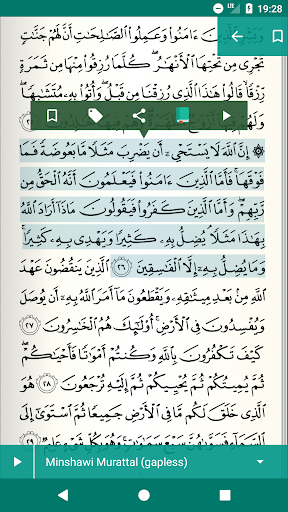 19:28
LTE
وَبَشِّرِ ٱلَّذِينَ ءَامَنُوا۟ وَعَمِلُوا۟ ٱلصَّـٰلِحَـٰتِ أَنَّ لَهُمْ جَنَّـٰتٍ
تَجْرِى مِن تَحْتِهَا ٱلْأَنْهَـٰرُ ۖ كُلَّمَا رُزِقُوا۟ مِنْهَا مِن ثَمَرَةٍ
رِّزْقًا ۙ قَالُوا۟ هَـٰذَا ٱلَّذِى رُزِقْنَا مِن قَبْلُ ۖ وَأُتُوا۟ بِهِۦ مُتَشَـٰبِهًا ۖ
وَلَهُمْ
۞ إِنَّ ٱللَّهَ لَا يَسْتَحْىِۦٓ أَن يَضْرِبَ مَثَلًا مَّا بَعُوضَةً فَمَا
فَوْقَهَا ۚ فَأَمَّا ٱلَّذِينَ ءَامَنُوا۟ فَيَعْلَمُونَ أَنَّهُ ٱلْحَقُّ مِن
رَّبِّهِمْ ۖ وَأَمَّا ٱلَّذِينَ كَفَرُوا۟ فَيَقُولُونَ مَاذَآ أَرَادَ ٱللَّهُ
بِهَـٰذَا مَثَلًا ۘ يُضِلُّ بِهِۦ كَثِيرًا وَيَهْدِى بِهِۦ كَثِيرًا ۚ
وَمَا يُضِلُّ بِهِۦٓ إِلَّا ٱلْفَـٰسِقِينَ ٢٦ ٱلَّذِينَ يَنقُضُونَ عَهْدَ
ٱللَّهِ مِنۢ بَعْدِ مِيثَـٰقِهِۦ وَيَقْطَعُونَ مَآ أَمَرَ ٱللَّهُ بِهِۦٓ أَن يُوصَلَ
وَيُفْسِدُونَ فِى ٱلْأَرْضِ ۚ أُو۟لَـٰٓئِكَ هُمُ ٱلْخَـٰسِرُونَ ٢٧
كَيْفَ تَكْفُرُونَ بِٱللَّهِ وَكُنتُمْ أَمْوَٰتًا فَأَحْيَـٰكُمْ ۖ
ثُمَّ يُمِيتُكُمْ ثُمَّ يُحْيِيكُمْ ثُمَّ إِلَيْهِ تُرْجَعُونَ ٢٨ هُوَ
ٱلَّذِى خَلَقَ لَكُم مَّا فِى ٱلْأَرْضِ جَمِيعًا ثُمَّ ٱسْتَوَىٰٓ إِلَى
Minshawi Murattal (gapless)